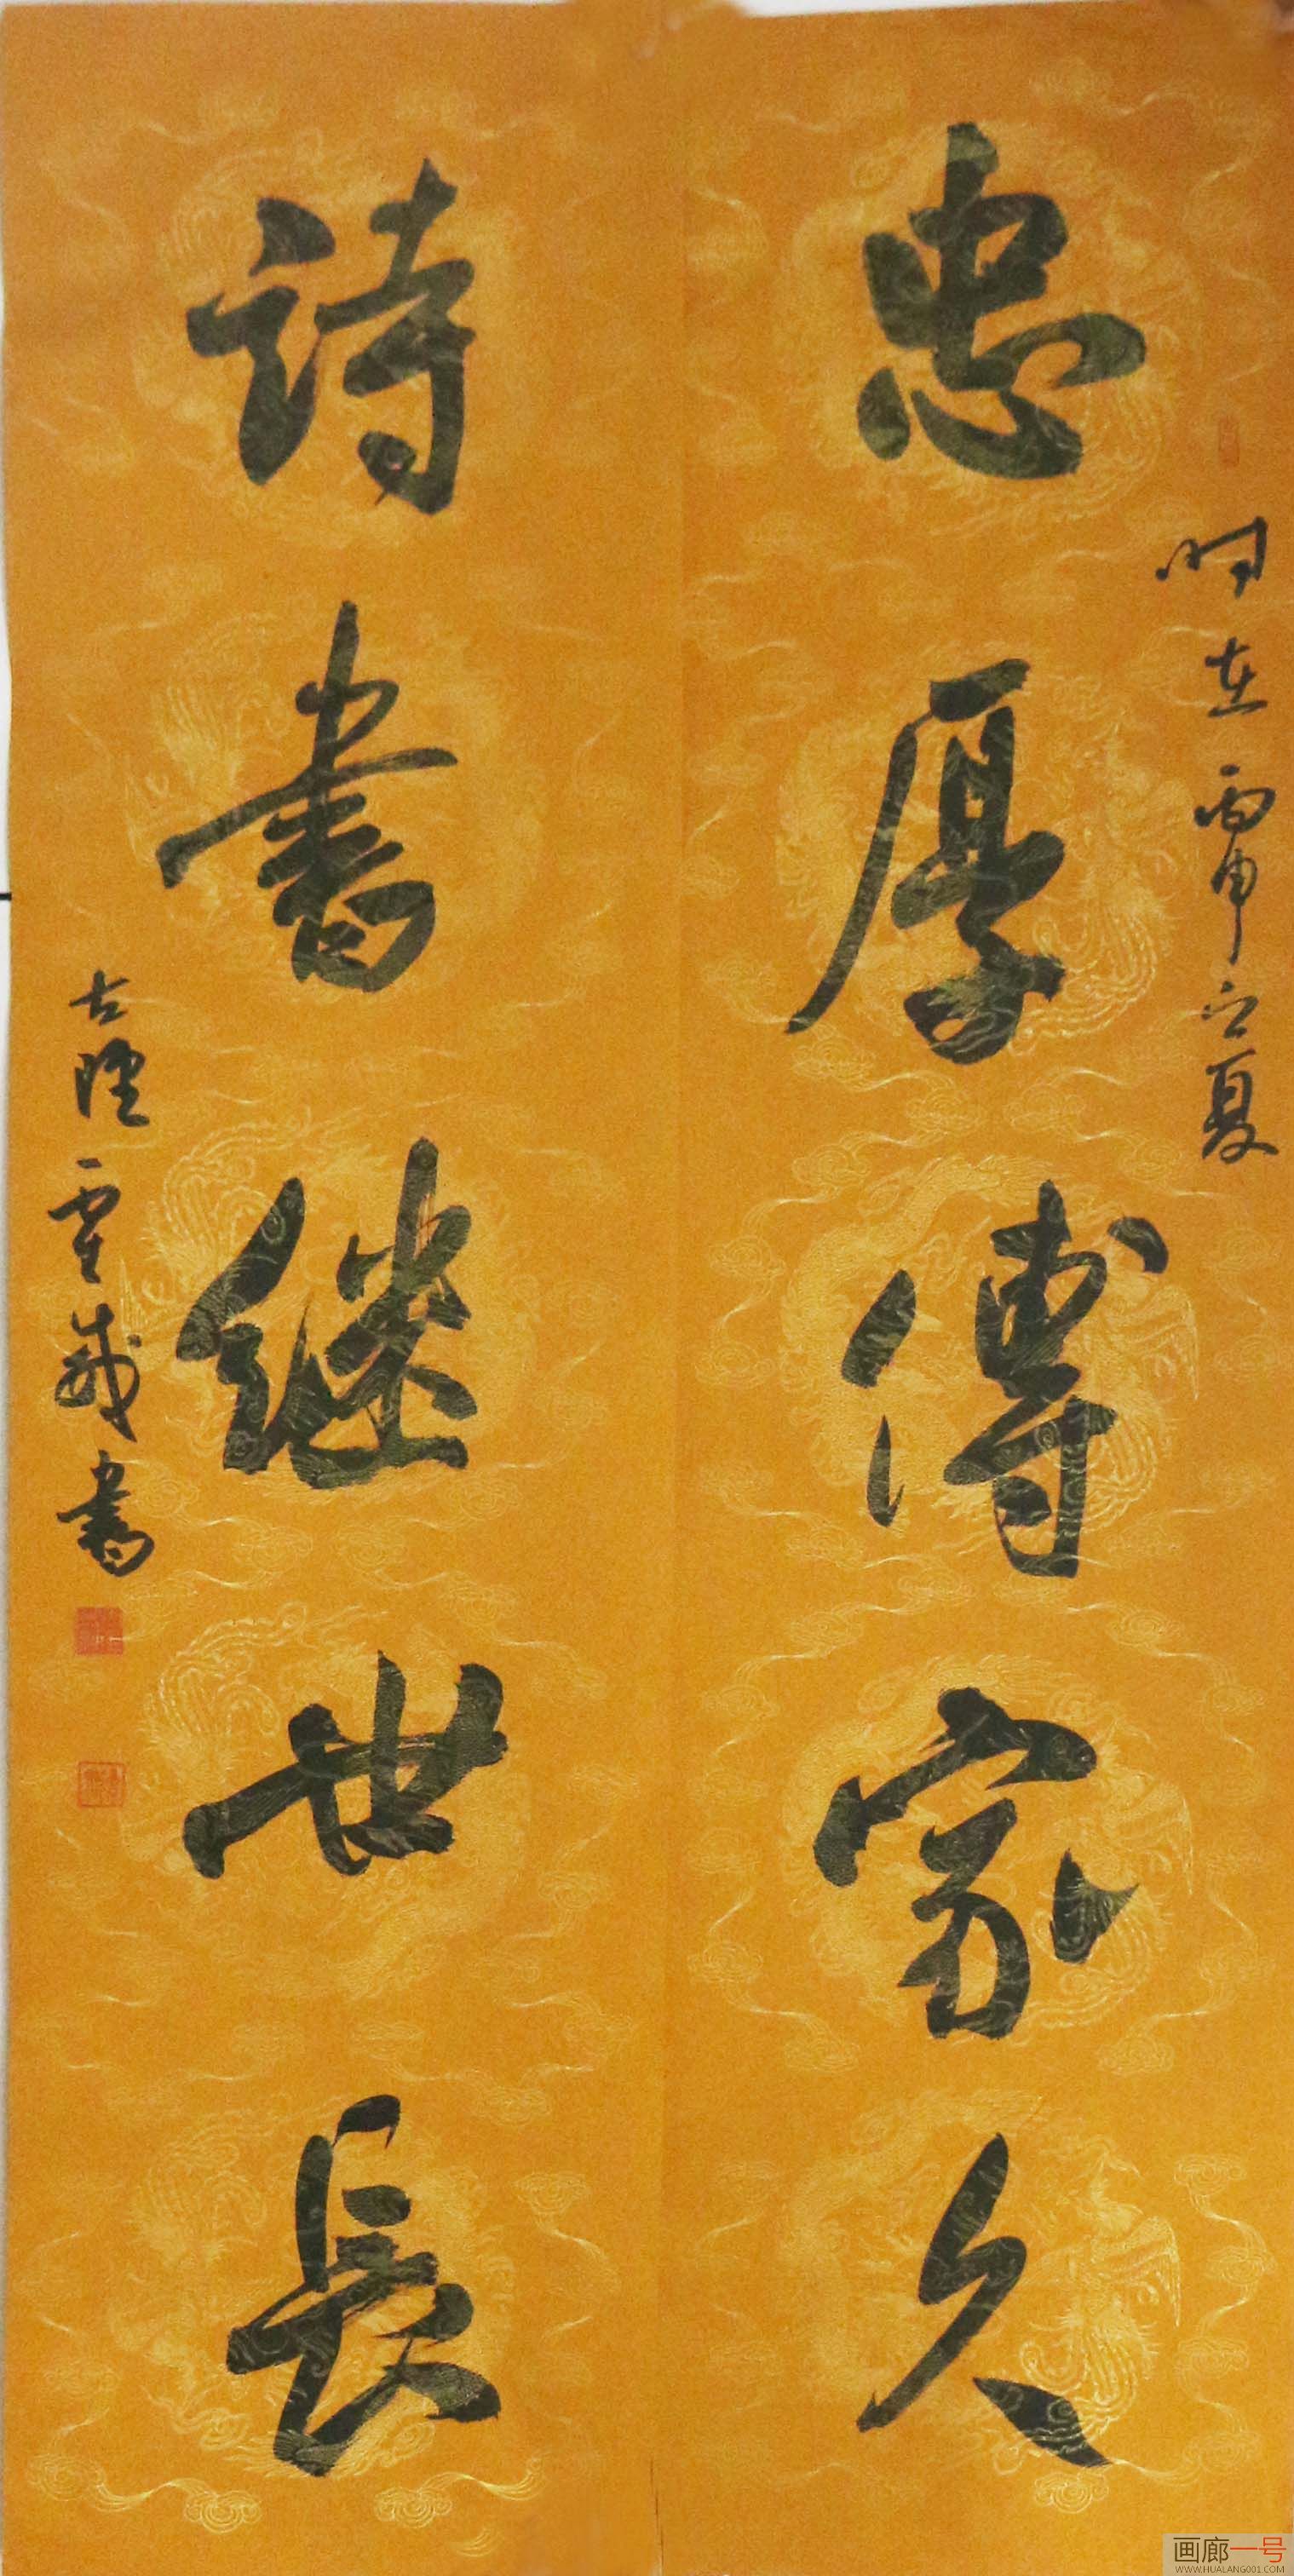 忠厚傳家久
时在丙申之夏
詩書继世長
古陸雲城書
画廊一号
WWW.HUALANG001.COM